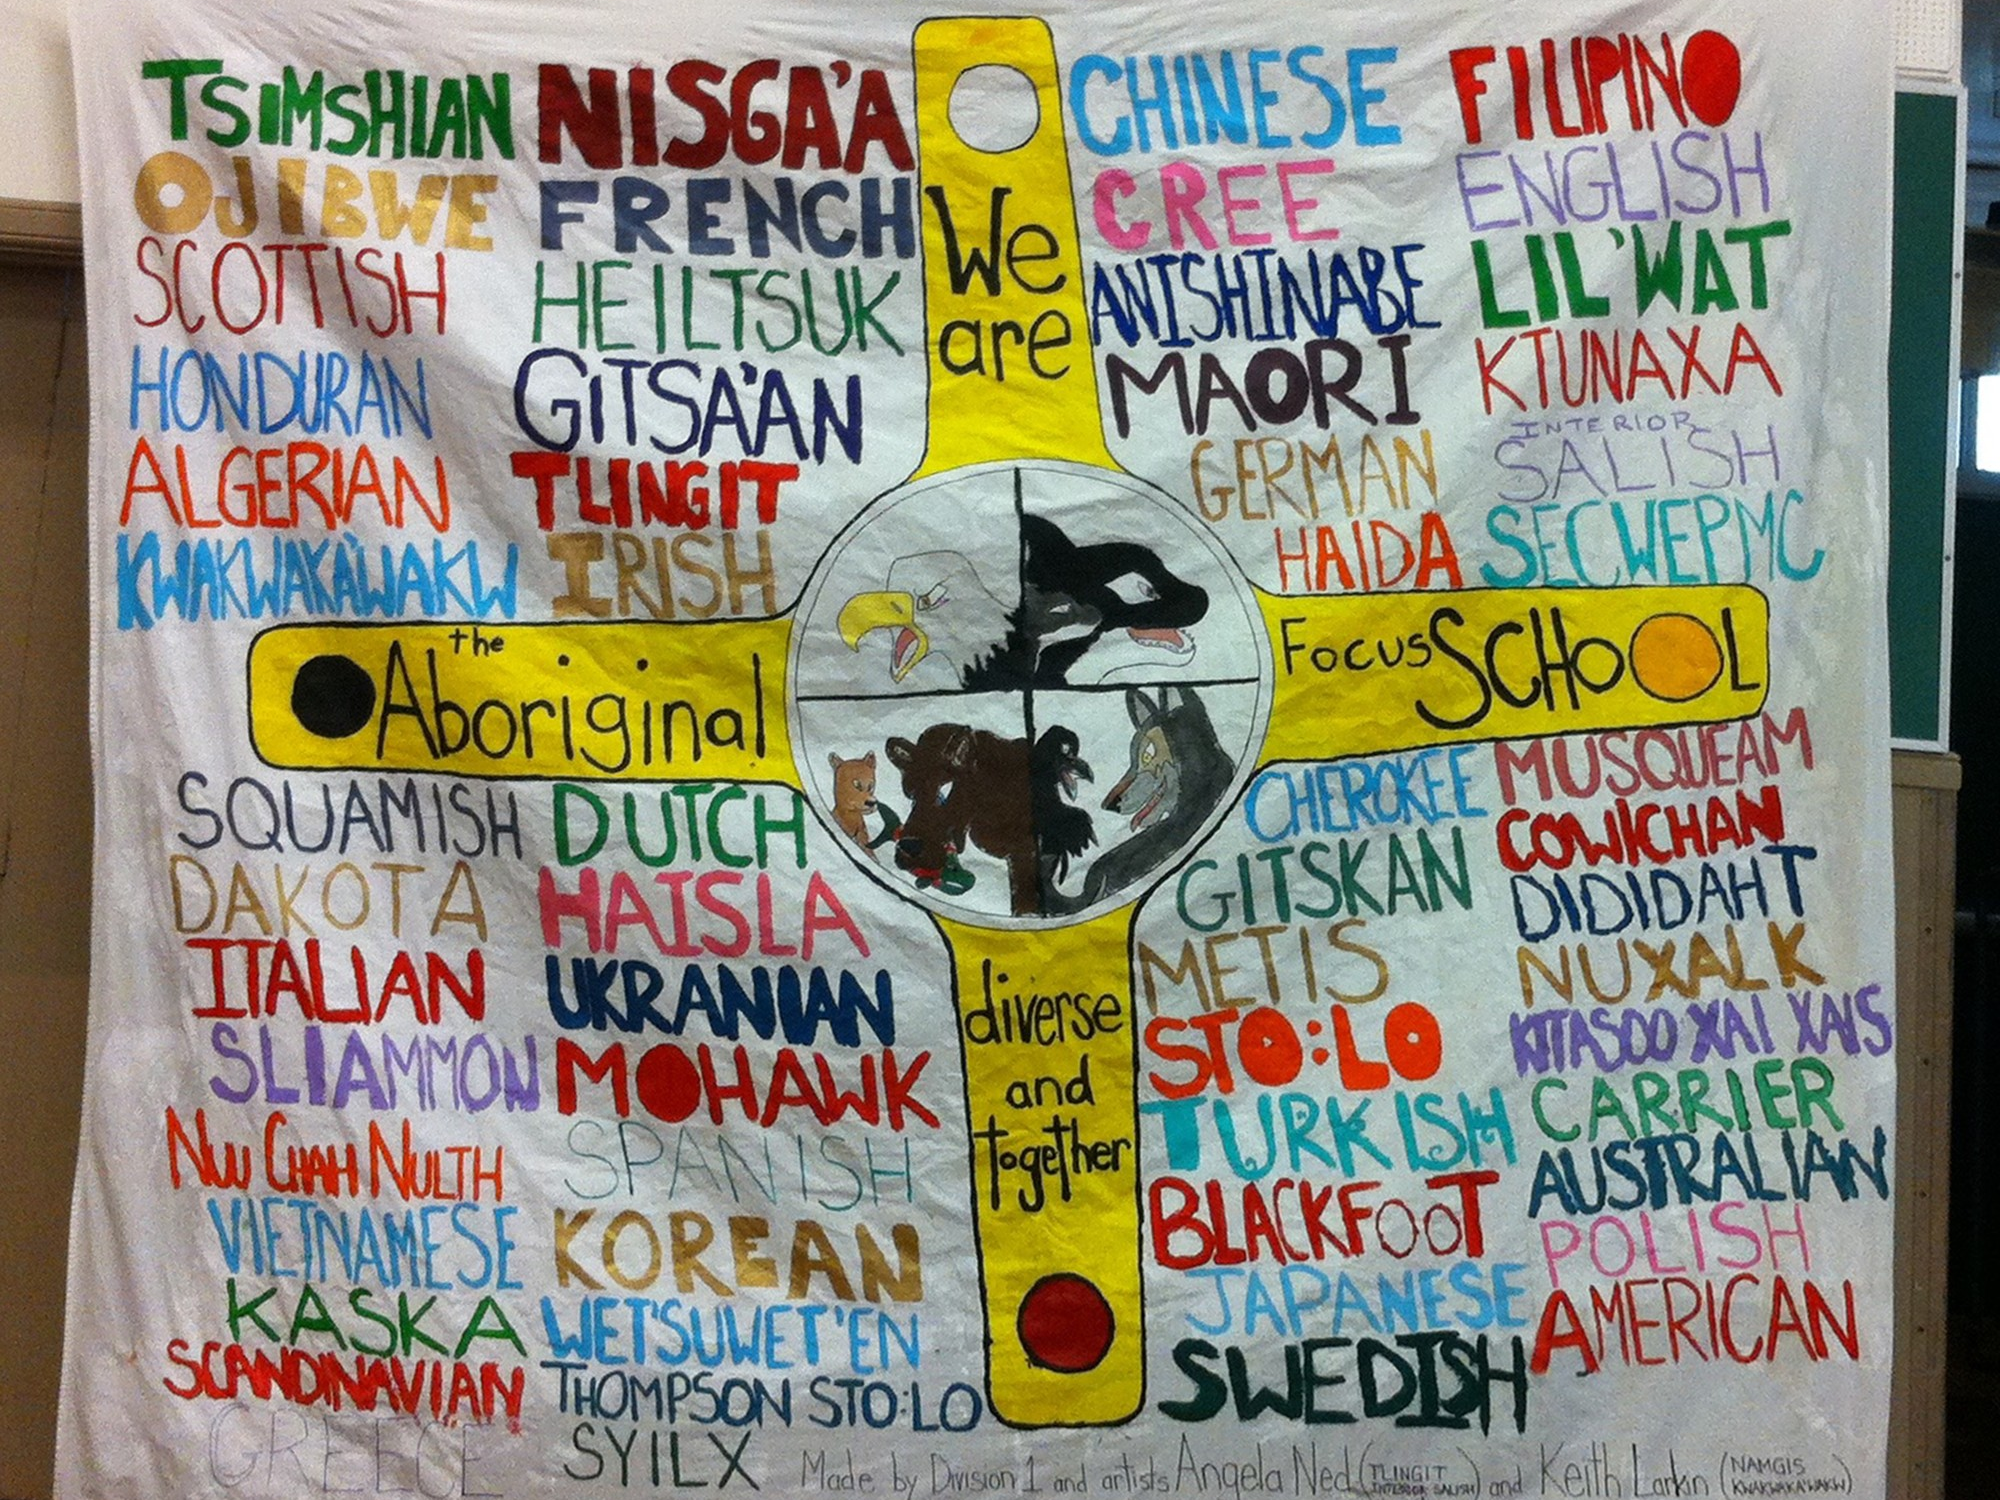 TSIMSHIAN
OJIBWE
SCOTTISH
HONDURAN
ALGERIAN
KWAKWAKA'WAKW
NISGA'A
FRENCH
HEILTSUK
GITSA'AN
TLINGIT
IRISH
We
are
CHINESE
CREE
ANISHINABE
MAORI
GERMAN
HAIDA
FILIPINO
ENGLISH
LIL'WAT
KTUNAXA
INTERIOR
SALISH
SECWEPMC
the
Aboriginal
Focus SCHOOL
SQUAMISH
DAKOTA
ITALIAN
SLIAMMON
NUU CHAH NULTH
VIETNAMESE
KASKA
SCANDINAVIAN
GREECE
DUTCH
HAISLA
UKRANIAN
MOHAWK
SPANISH
KOREAN
WET'SUWET'EN
THOMPSON STO:LO
SYILX
diverse
and
together
CHEROKEE
GITSKAN
METIS
STO:LO
TURKISH
BLACKFOOT
JAPANESE
SWEDISH
MUSQUEAM
COWICHAN
DIDIDAHT
NUXALK
KITASOO XAI XAIS
CARRIER
AUSTRALIAN
POLISH
AMERICAN
Made by Division 1 and artists Angela Ned (TLINGIT INTERIOR SALISH) and Keith Larkin (NAMGIS KWAKWAKA'WAKW)